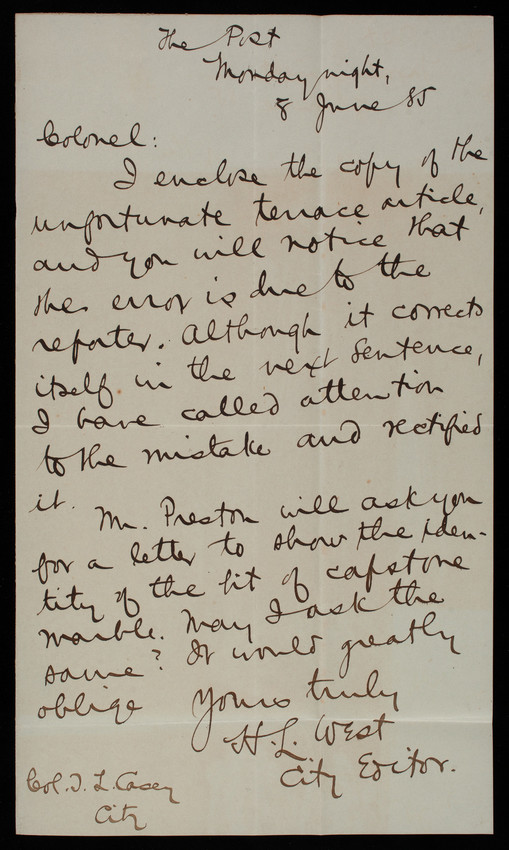 The Post
Monday night,
8 June 85
Colonel:
I enclose the copy of the
unfortunate terrace article,
and you will notice that
the error is due to the
reporter. Although it corrects
itself in the next sentence,
I have called attention
to the mistake and rectified
it.
Mr. Preston will ask you
for a letter to show the iden-
tity of the bit of capstone
marble. May I ask the
same? It would greatly
oblige Yours truly
H. L. West
City Editor.
Col. T. L. Casey
City